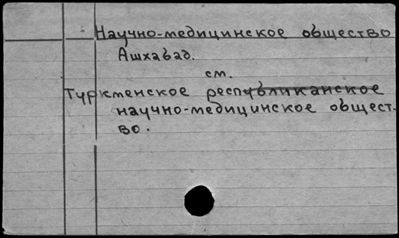 Научно-медицинское общество
Ашхабад.
см.
Туркменское республиканское
научно-медицинское общест-
во.